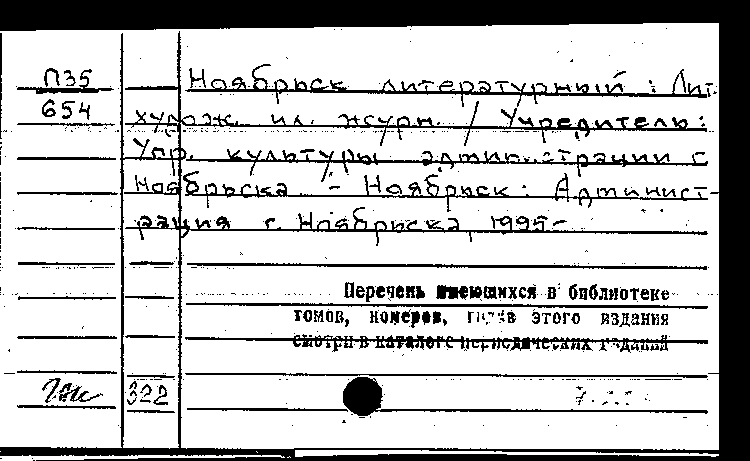 П35 Ноябрьск литературный : Лит.
654 худож. ил. журн. / Учредитель:
Упр. культуры администрации г.
Ноябрьска. - Ноябрьск: Админист-
рация г. Ноябрьска, 1995-
Перечень имеющихся в библиотеке
томов, номеров, этого издания
смотри в каталоге периодических изданий
322